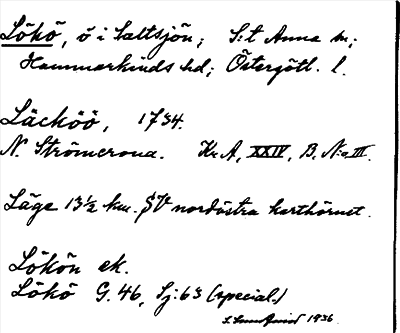 Lökö, ö i Saltsjön; S:t Anna sn;
Hammarkinds hd; Östergötl. l.
Läcköö, 1734.
N. Strömcrona. Kr.A, XXIV, B, N:o III.
Läge 13½ km. SV nordöstra karthörnet.
Lökön ek.
Lökö G. 46, Sj: 63 (special.)
1936.